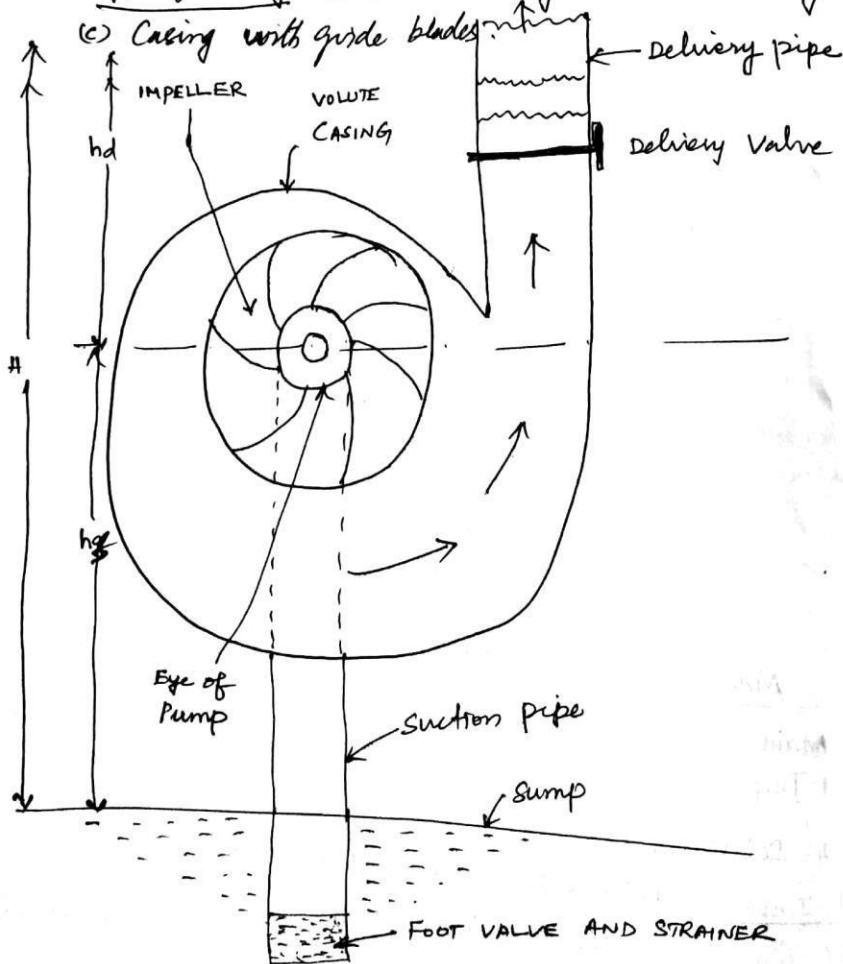 (c) Casing with guide blades.
Delivery pipe
IMPELLER
VOLUTE
CASING
hd
Delivery Valve
H
hs
Eye of
Pump
Suction pipe
Sump
FOOT VALVE AND STRAINER